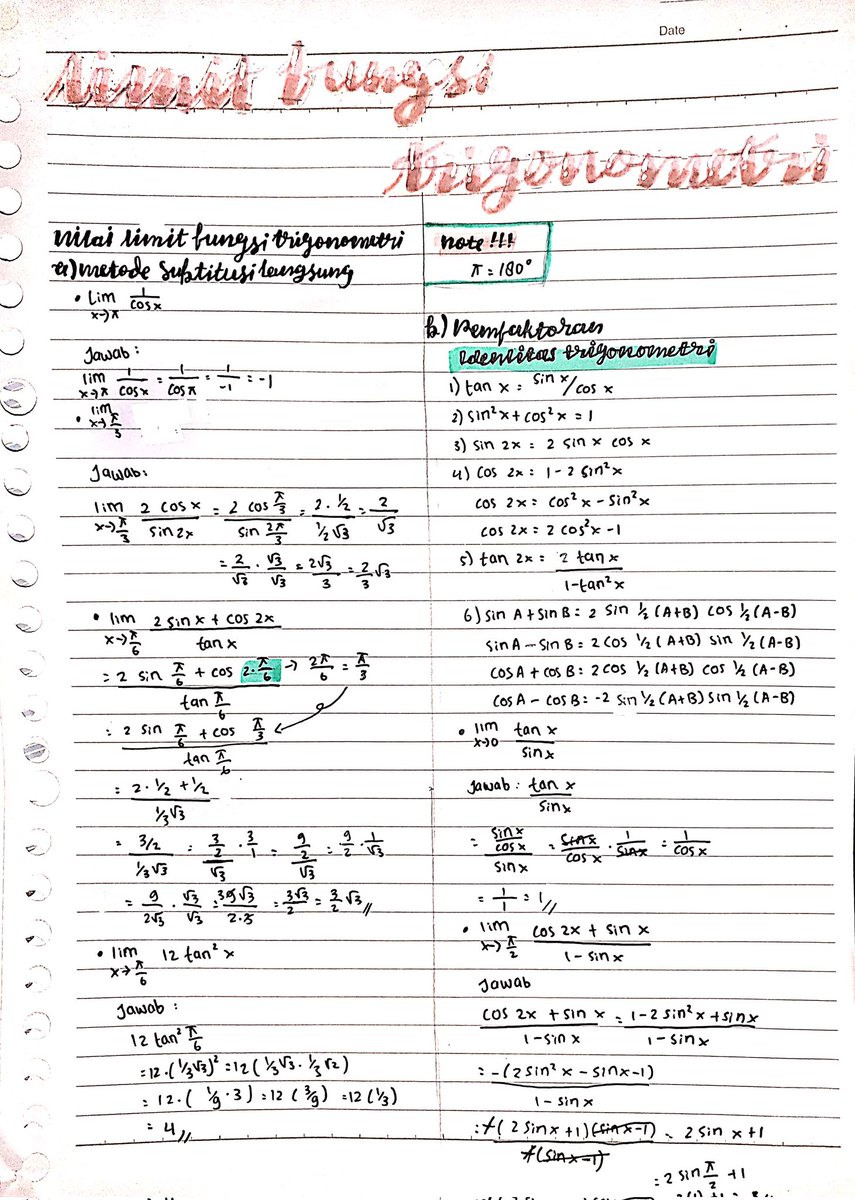 Date
Limit fungsi
trigonometri
Nilai limit fungsi trigonometri
a) metode Subtitusi langsung
• lim x→π 1/cos x
Jawab:
lim x→π 1/cos x = 1/cos π = 1/-1 = -1
• lim x→π/3
Jawab:
lim x→π/3 2 cos x / sin 2x = 2 cos π/3 / sin 2π/3 = 2 · 1/2 / 1/2 √3 = 2/√3
= 2/√3 · √3/√3 = 2√3/3 = 2/3 √3
• lim x→π/6 2 sin x + cos 2x / tan x
= 2 sin π/6 + cos 2·π/6 / tan π/6 → 2π/6 = π/3
= 2 sin π/6 + cos π/3 / tan π/6
= 2 · 1/2 + 1/2 / 1/3 √3
= 3/2 / 1/3 √3 = 3/2 / √3 · 3/1 = 9/2 / √3 = 9/2 · 1/√3
= 9/2√3 · √3/√3 = 9√3/2·3 = 3√3/2 = 3/2 √3 //
• lim x→π/6 12 tan² x
Jawab :
12 tan² π/6
= 12 · (1/3 √3)² = 12 (1/3 √3 · 1/3 √2)
= 12 · ( 1/9 · 3) = 12 (3/9) = 12 (1/3)
= 4 //
note !!!
π = 180°
b.) Pemfaktoran
Identitas trigonometri
1) tan x = sin x / cos x
2) sin² x + cos² x = 1
3) sin 2x = 2 sin x cos x
4) cos 2x = 1 - 2 sin² x
cos 2x = cos² x - sin² x
cos 2x = 2 cos² x - 1
5) tan 2x = 2 tan x / 1 - tan² x
6) sin A + sin B = 2 sin 1/2 (A+B) cos 1/2 (A-B)
sin A - sin B = 2 cos 1/2 (A+B) sin 1/2 (A-B)
cos A + cos B = 2 cos 1/2 (A+B) cos 1/2 (A-B)
cos A - cos B = -2 sin 1/2 (A+B) sin 1/2 (A-B)
• lim x→0 tan x / sin x
Jawab : tan x / sin x
= sin x / cos x / sin x = sin x / cos x · 1 / sin x = 1 / cos x
= 1/1 = 1 //
• lim x→π/2 cos 2x + sin x / 1 - sin x
Jawab
cos 2x + sin x / 1 - sin x = 1 - 2 sin² x + sin x / 1 - sin x
= -(2 sin² x - sin x - 1) / 1 - sin x
= -(2 sin x + 1)(sin x - 1) / -(sin x - 1) = 2 sin x + 1
= 2 sin π/2 + 1